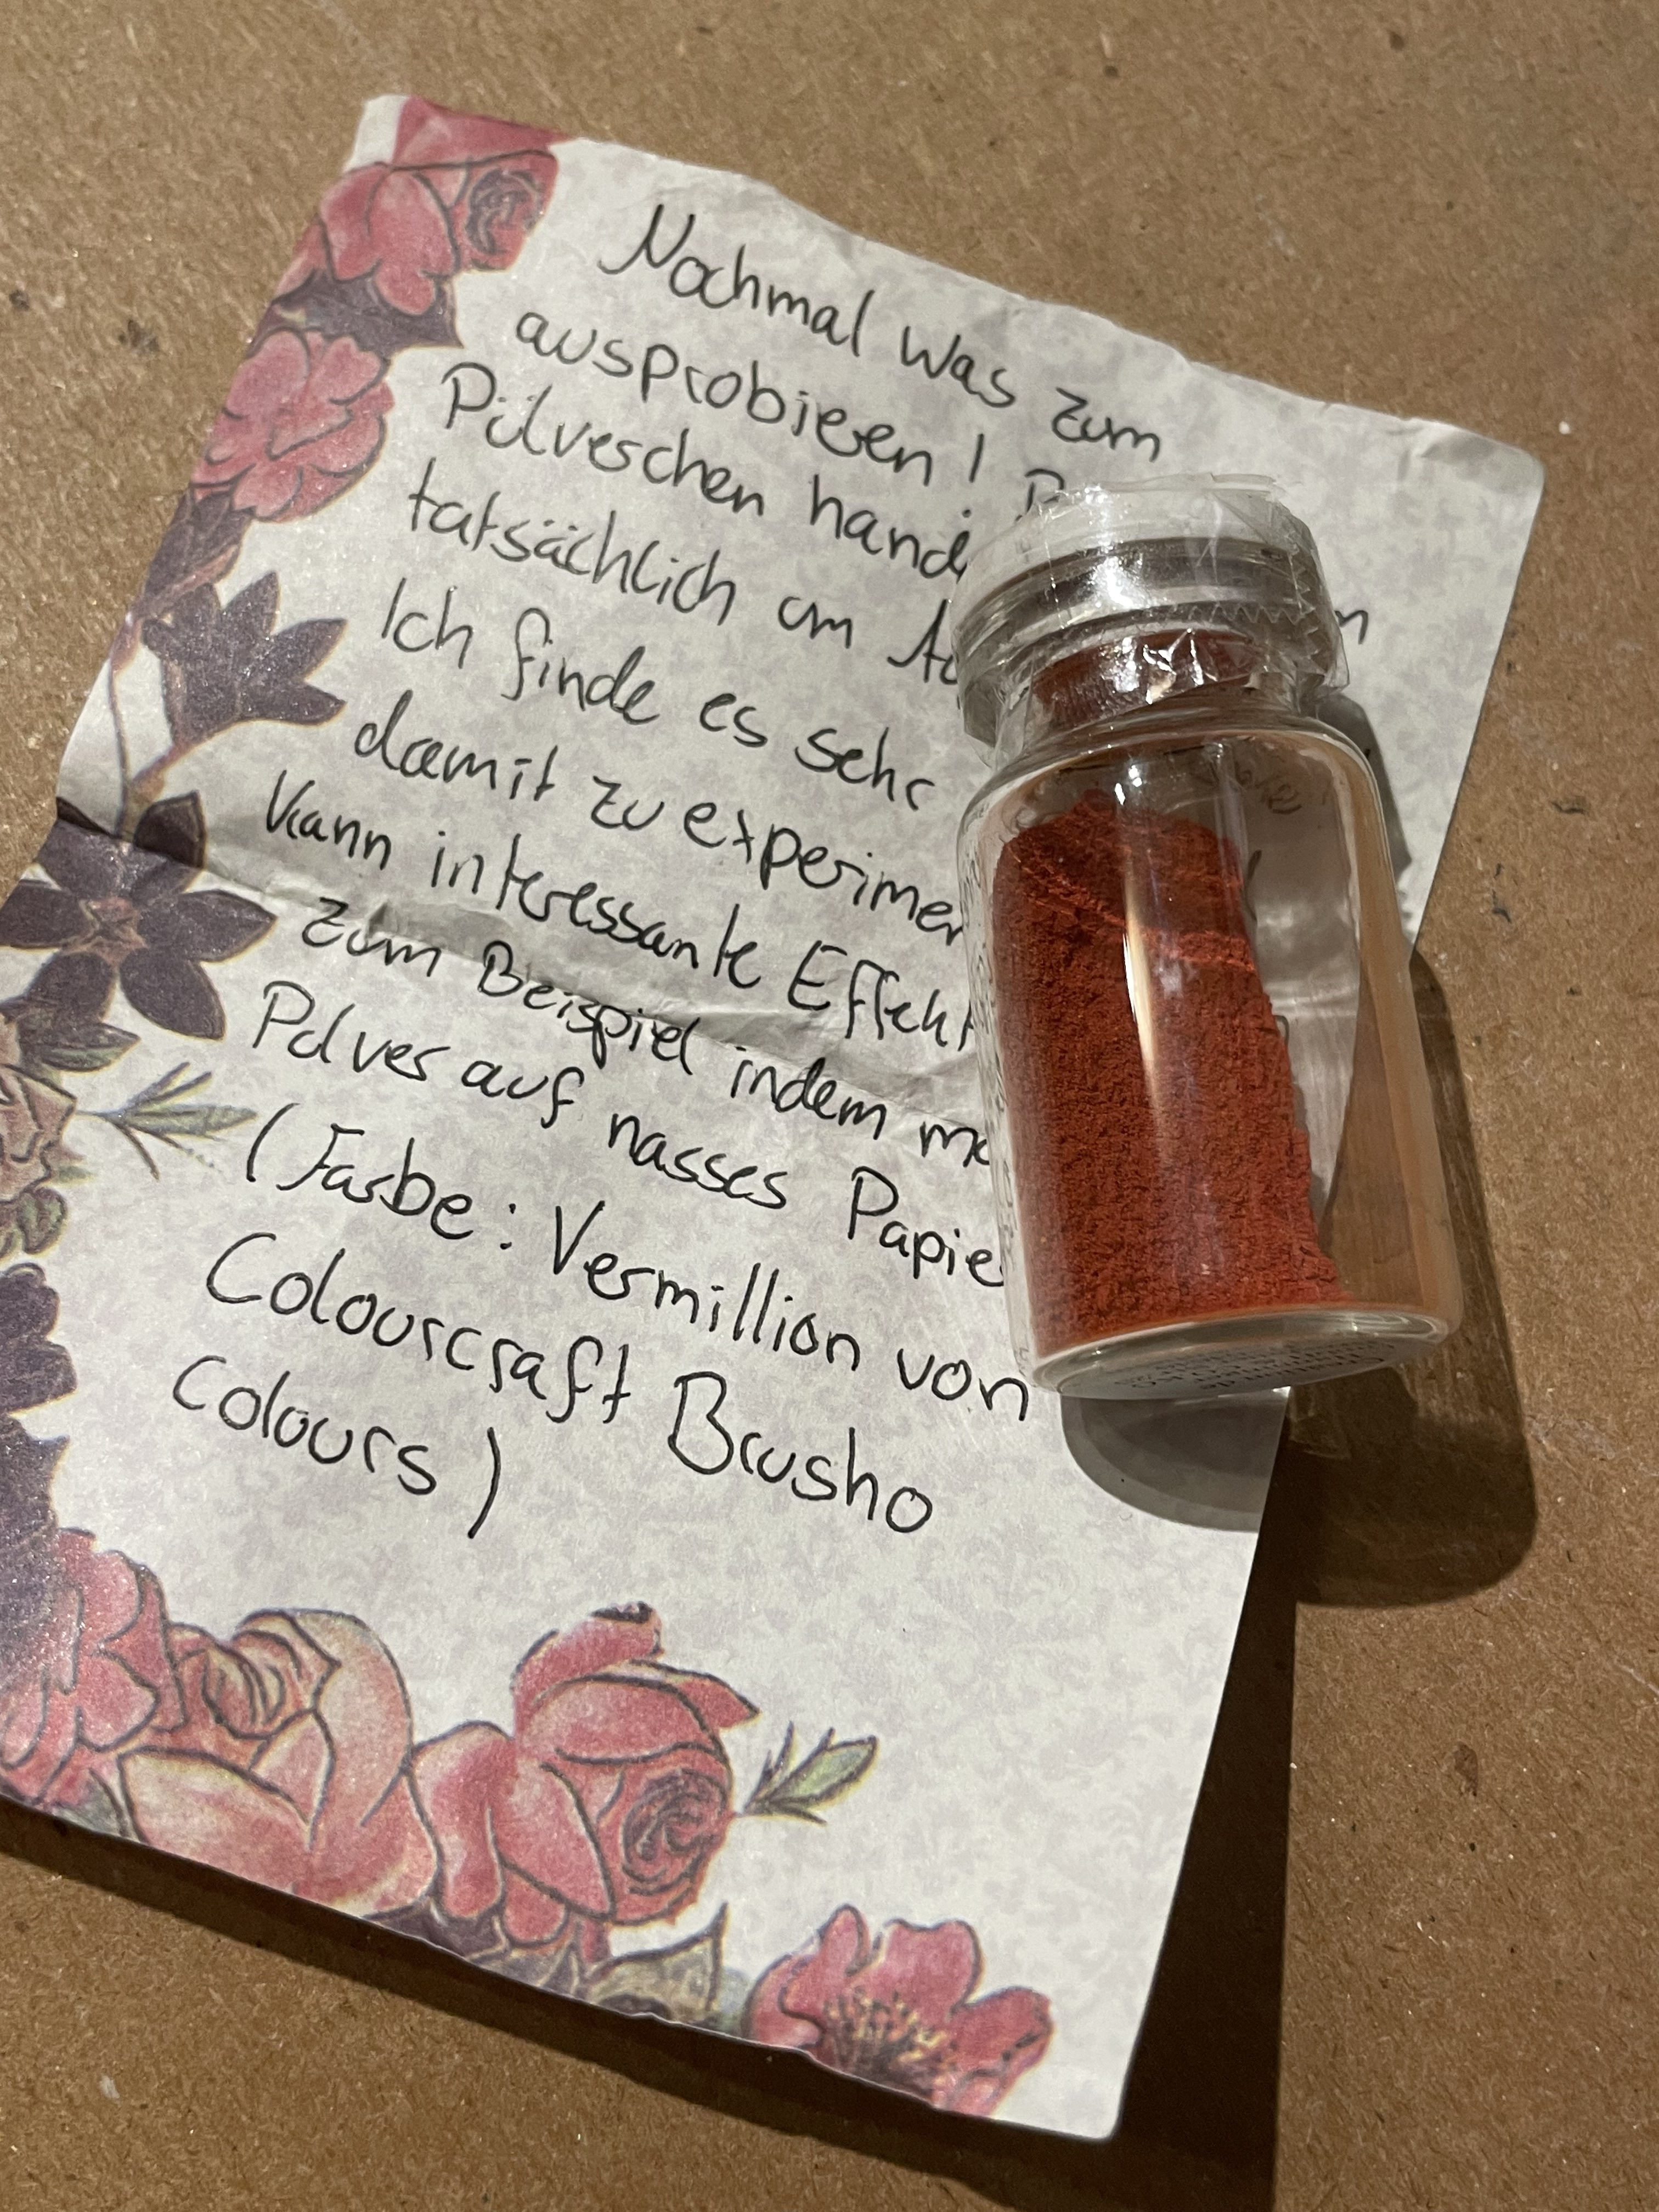 Nochmal was zum
ausprobieren!
Pülverchen
tatsächlich um
Ich finde es sehr
damit zu
Kann interessante
zum Beispiel indem
Pulver auf nasses
(Farbe: Vermillion von
Colourcraft Brusho
colours)